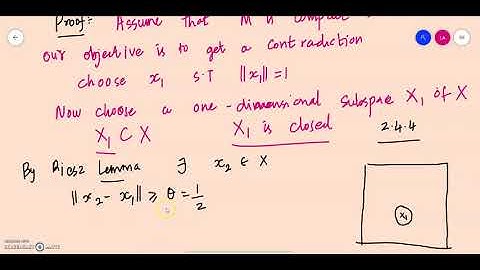 Proof:- Assume that M is compact
our objective is to get a contradiction
choose x₁ s.t ‖x₁‖ = 1
Now choose a one-dimensional subspace X₁ of X
X₁ ⊂ X X₁ is closed 2.4.4
By Riesz Lemma ∃ x₂ ∈ X
‖x₂ - x₁‖ ≥ θ = 1/2
X₁